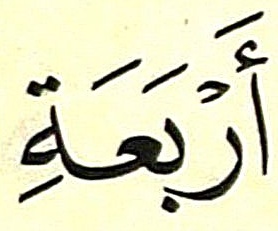 أَرْبَعَةِ